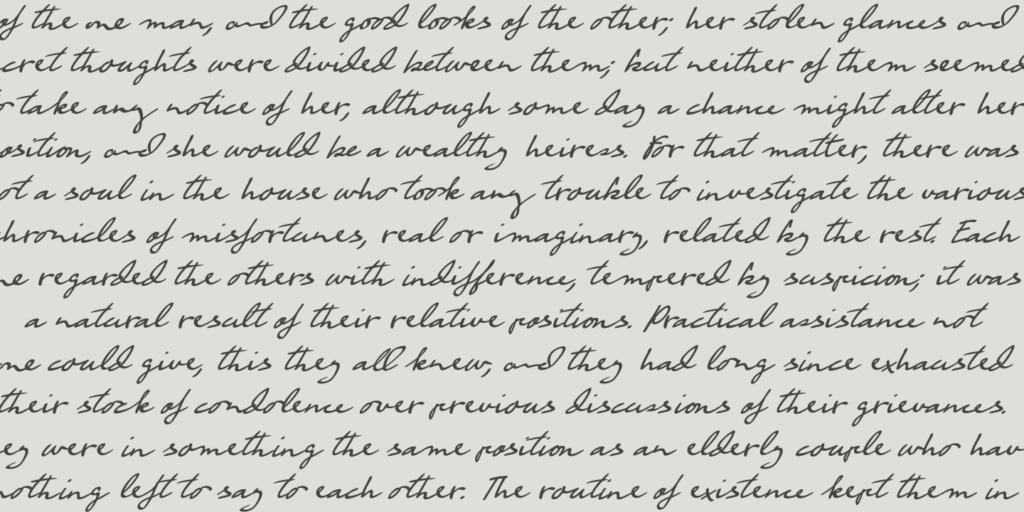 of the one man, and the good looks of the other; her stolen glances and
cret thoughts were divided between them; but neither of them seemed
to take any notice of her, although some day a chance might alter her
osition, and she would be a wealthy heiress. For that matter, there was
ot a soul in the house who took any trouble to investigate the various
chronicles of misfortunes, real or imaginary, related by the rest. Each
ne regarded the others with indifference, tempered by suspicion; it was
a natural result of their relative positions. Practical assistance not
one could give, this they all knew; and they had long since exhausted
their stock of condolence over previous discussions of their grievances.
ey were in something the same position as an elderly couple who hav
nothing left to say to each other. The routine of existence kept them in